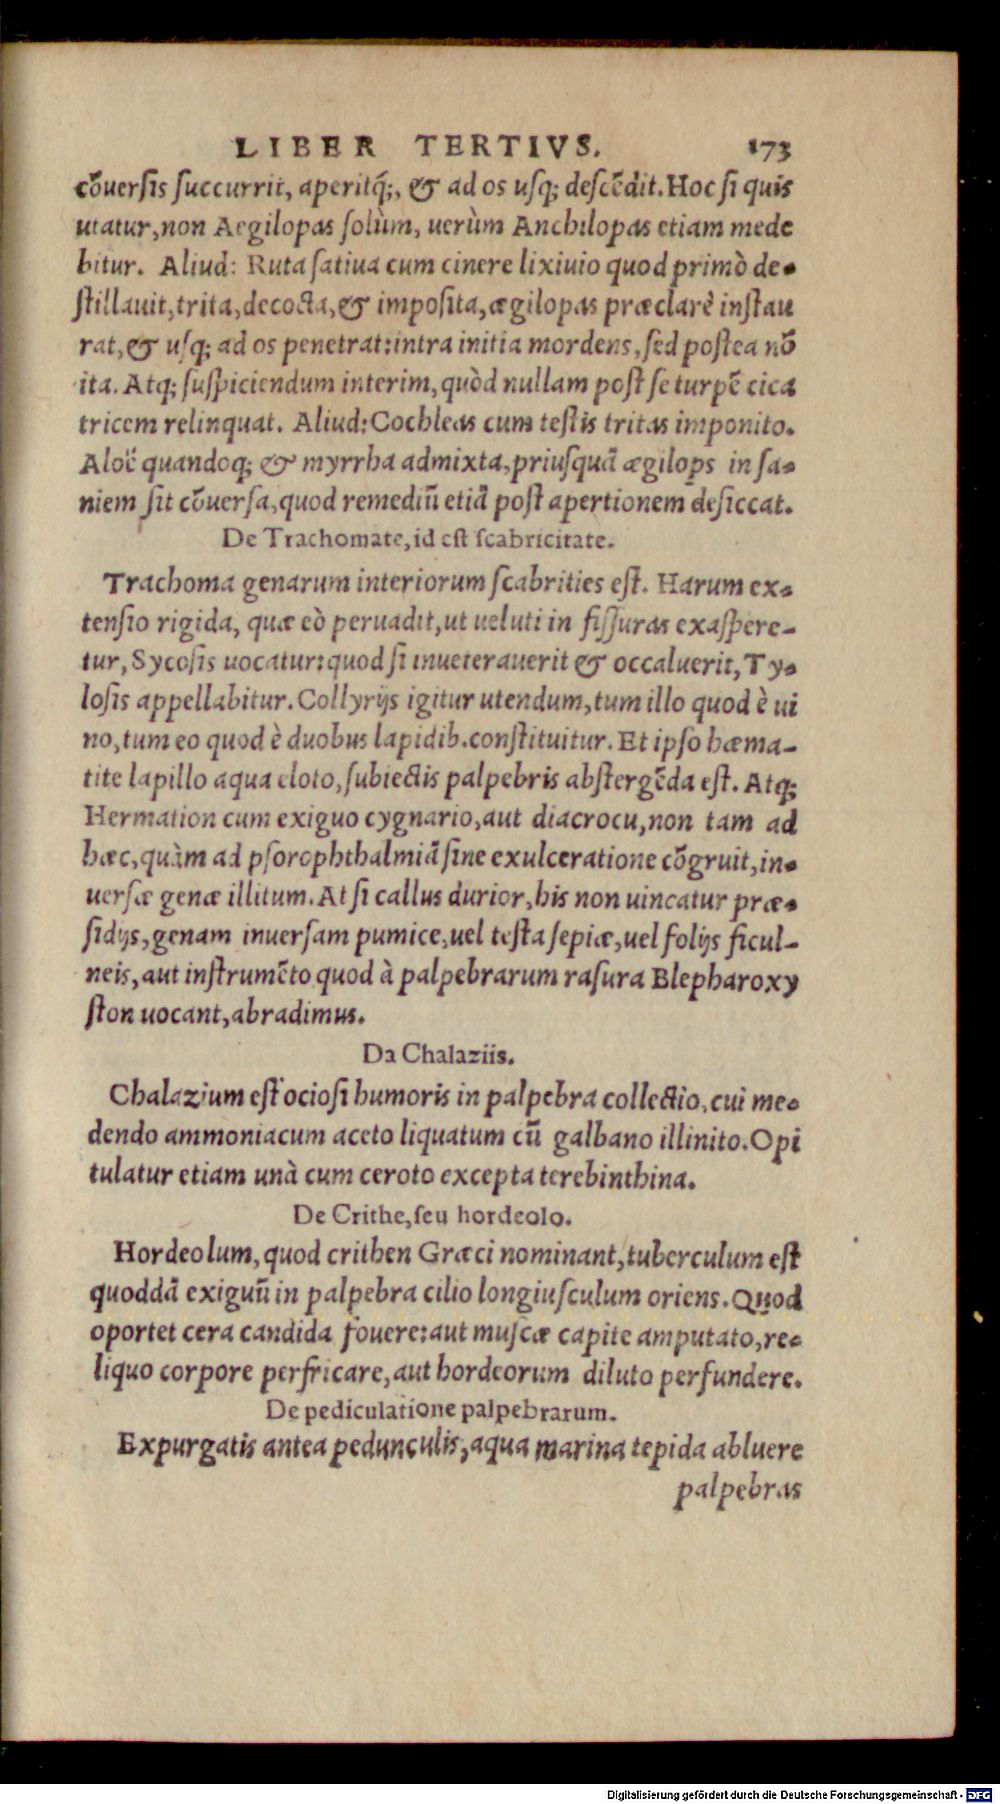 LIBER TERTIVS. 173
cõuersis succurrit, aperitq́;, & ad os usq; descẽdit. Hoc si quis
utatur, non Aegilopas solùm, uerùm Anchilopas etiam mede
bitur. Aliud: Ruta satiua cum cinere lixiuio quod primò de-
stillauit, trita, decocta, & imposita, ægilopas præclarè instau
rat, & usq; ad os penetrat: intra initia mordens, sed postea nõ
ita. Atq; suspiciendum interim, quòd nullam post se turpẽ cica
tricem relinquat. Aliud: Cochleas cum testis tritas imponito.
Aloë quandoq; & myrrha admixta, priusquã ægilops in sa-
niem sit cõuersa, quod remediũ etiã post apertionem desiccat.
De Trachomate, id est scabricitate.
Trachoma genarum interiorum scabrities est. Harum ex-
tensio rigida, quæ eò peruadit, ut ueluti in fissuras exaspere-
tur, Sycosis uocatur: quod si inueterauerit & occaluerit, Ty-
losis appellabitur. Collyrijs igitur utendum, tum illo quod è ui
no, tum eo quod è duobus lapidib. constituitur. Et ipso hæma-
tite lapillo aqua eloto, subiectis palpebris abstergẽda est. Atq;
Hermation cum exiguo cygnario, aut diacrocu, non tam ad
hæc, quàm ad psorophthalmiã sine exulceratione cõgruit, in-
uersæ genæ illitum. At si callus durior, his non uincatur præ-
sidijs, genam inuersam pumice, uel testa sepiæ, uel folijs ficul-
neis, aut instrumẽto quod à palpebrarum rasura Blepharoxy
ston uocant, abradimus.
Da Chalaziis.
Chalazium est ociosi humoris in palpebra collectio, cui me-
dendo ammoniacum aceto liquatum cũ galbano illinito. Opi
tulatur etiam unà cum ceroto excepta terebinthina.
De Crithe, seu hordeolo.
Hordeolum, quod crithen Græci nominant, tuberculum est
quoddã exiguũ in palpebra cilio longiusculum oriens. Quod
oportet cera candida fouere: aut muscæ capite amputato, re-
liquo corpore perfricare, aut hordeorum diluto perfundere.
De pediculatione palpebrarum.
Expurgatis antea pedunculis, aqua marina tepida abluere
palpebras
Digitalisierung gefördert durch die Deutsche Forschungsgemeinschaft - DFG